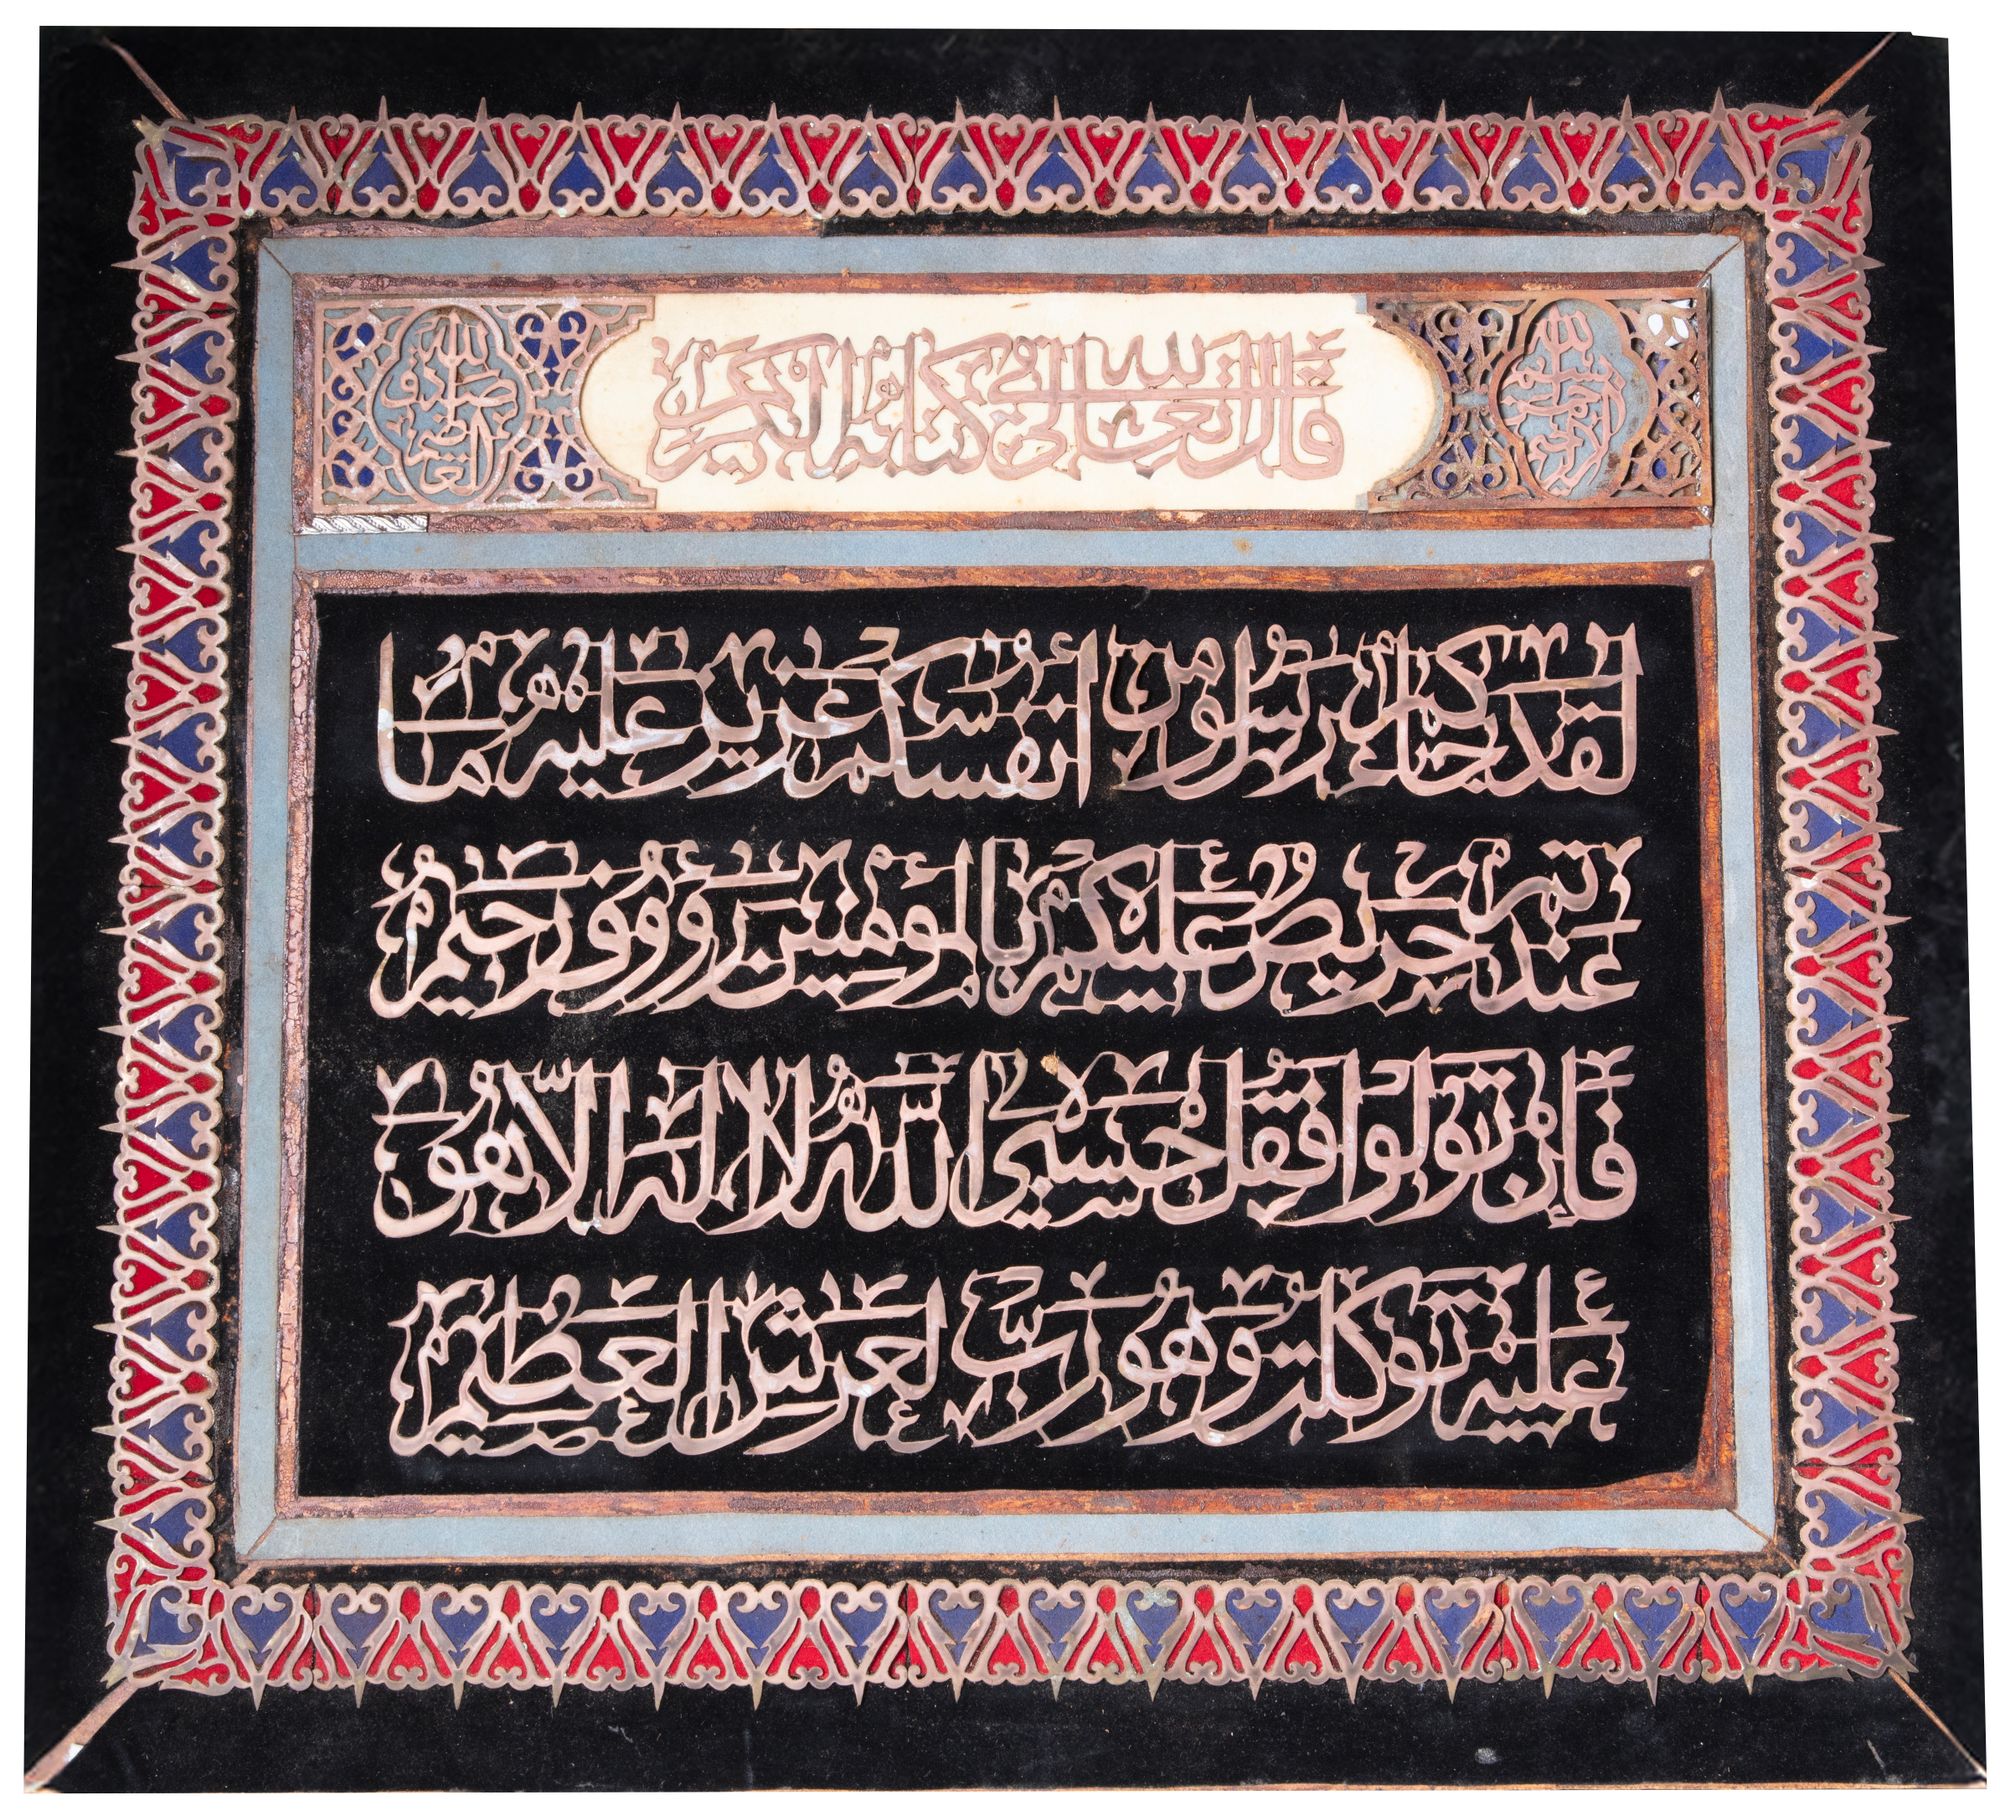 بسم الله الرحمن الرحيم
قال الله تعالى في كتابه الكريم
صدق الله العظيم
لقد جاءكم رسول من أنفسكم عزيز عليه ما
عنتم حريص عليكم بالمؤمنين رءوف رحيم
فإن تولوا فقل حسبي الله لا إله إلا هو
عليه توكلت وهو رب العرش العظيم